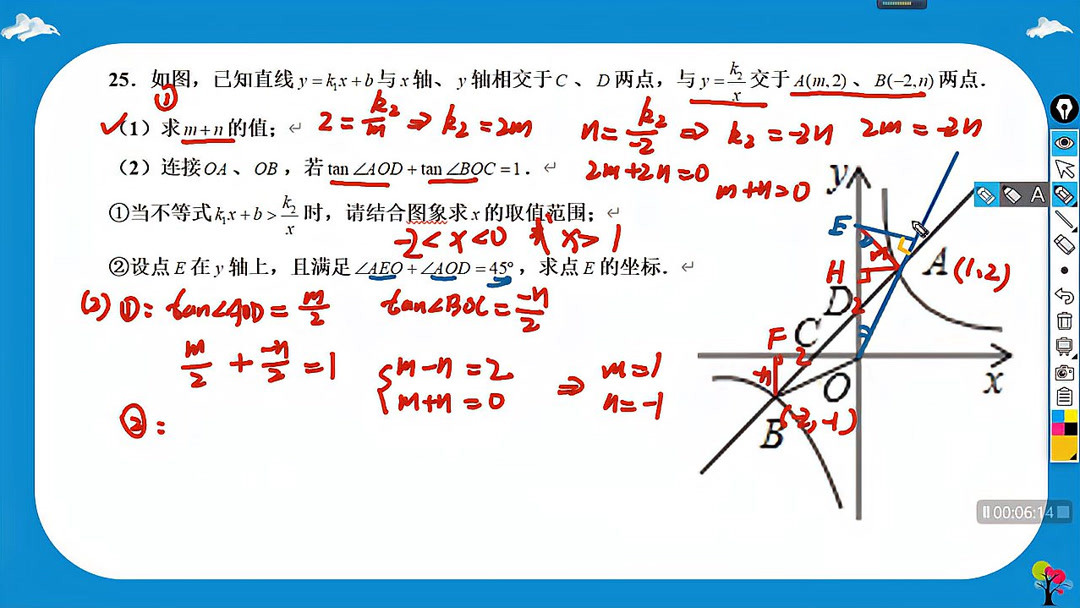 25. 如图，已知直线y=k₁x+b与x轴、y轴相交于C、D两点，与y=k₂/x交于A(m,2)、B(-2,n)两点.
①
✓(1)求m+n的值；
2=k₂/m ⇒ k₂=2m
n=k₂/-2 ⇒ k₂=-2n
2m=-2n
(2)连接OA、OB，若tan∠AOD+tan∠BOC=1.
2m+2n=0
m+n=0
①当不等式k₁x+b>k₂/x时，请结合图象求x的取值范围；
-2<x<0 或 x>1
②设点E在y轴上，且满足∠AEO+∠AOD=45°，求点E的坐标.
(2) ①: tan∠AOD=m/2 tan∠BOC=-n/2
m/2+-n/2=1
{m-n=2
m+n=0
⇒ m=1
n=-1
②:
y
E
m
H
A (1,2)
D
2
F
C
2
-n
O
x
B (-2,-1)
A
00:06:14